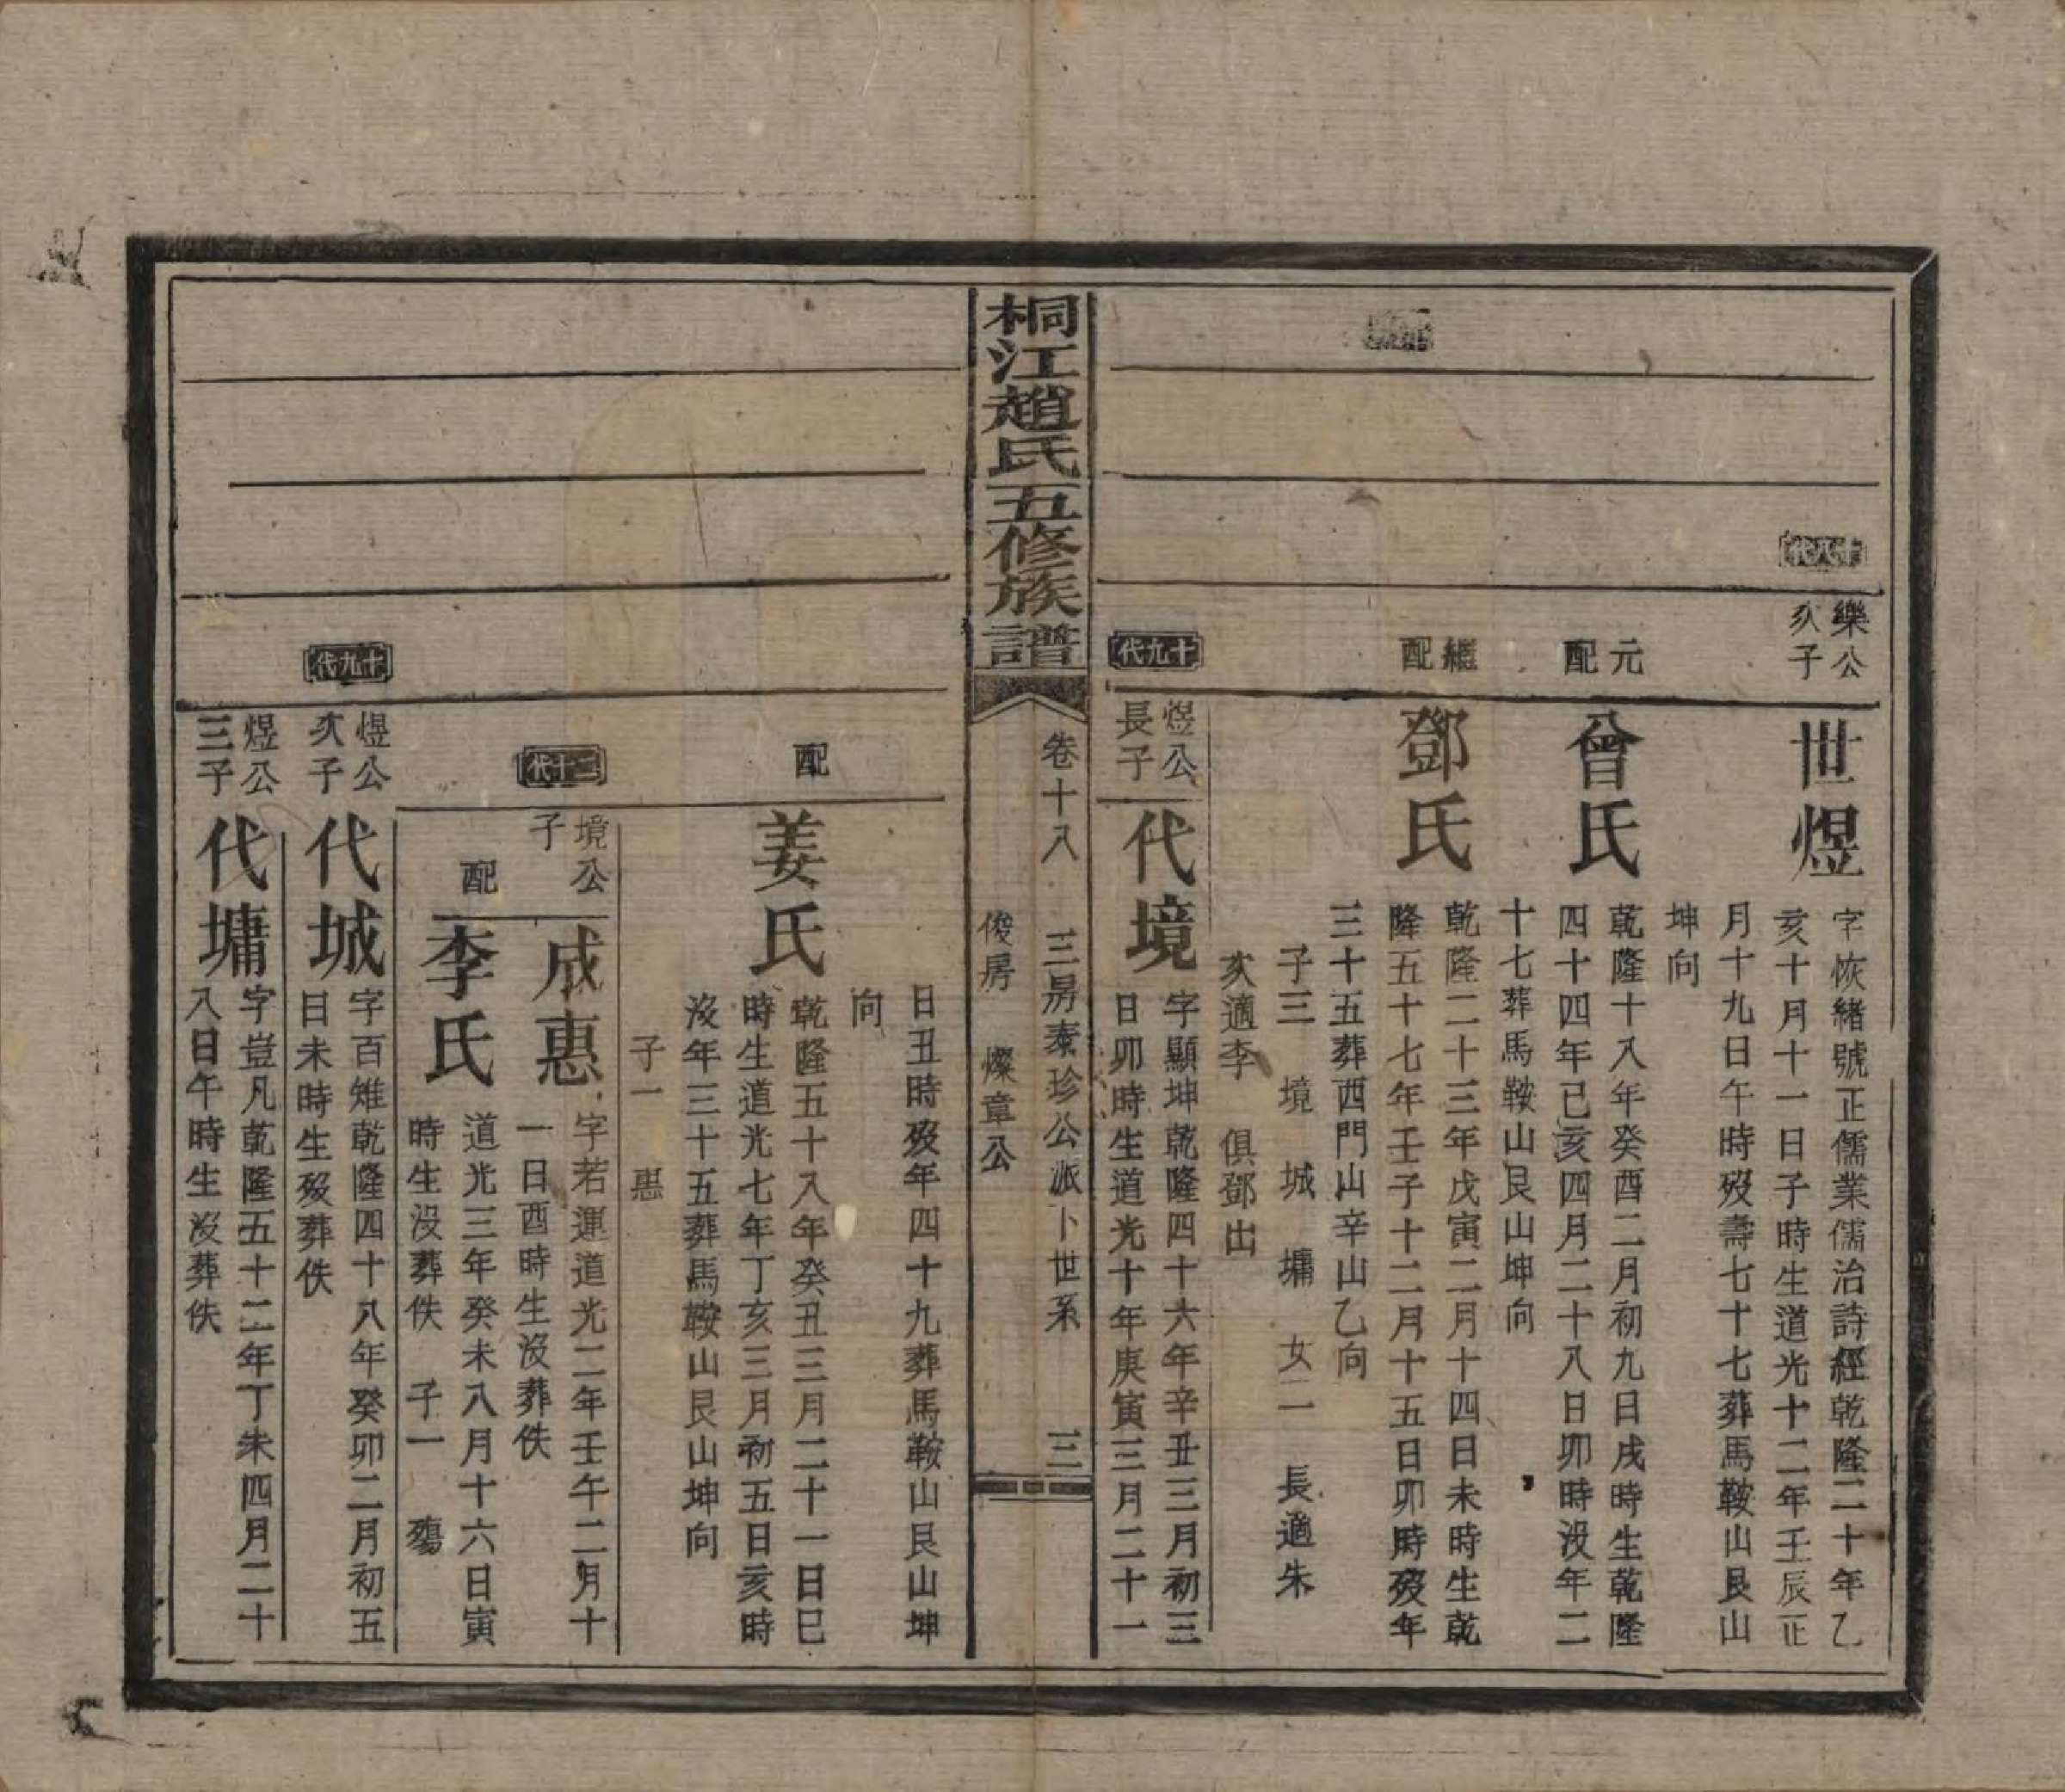 十八代
樂公
次子
世煜
字恢緒號正儒業儒治詩經乾隆二十年乙
亥十月十一日子時生道光十二年壬辰正
月十九日午時歿壽七十七葬馬鞍山艮山
坤向
元
配
曾氏
乾隆十八年癸酉二月初九日戌時生乾隆
四十四年己亥四月二十八日卯時沒年二
十七葬馬鞍山艮山坤向
繼
配
鄧氏
乾隆二十三年戊寅二月十四日未時生乾
隆五十七年壬子十二月十五日卯時歿年
三十五葬西門山辛山乙向
子三 境 城 墉 女二 長適朱
次適李 俱鄧出
十九代
煜公
長子
代境
字顯坤乾隆四十六年辛丑三月初三
日卯時生道光十年庚寅三月二十一
桐江趙氏五修族譜
卷十八 三房泰珍公派卜世系 三
俊房 燦章公
日丑時歿年四十九葬馬鞍山艮山坤
向
配
姜氏
乾隆五十八年癸丑三月二十一日巳
時生道光七年丁亥三月初五日亥時
沒年三十五葬馬鞍山艮山坤向
子一 惠
二十代
境公
子
成惠
字若運道光二年壬午二月十
一日酉時生沒葬佚
配
李氏
道光三年癸未八月十六日寅
時生沒葬佚 子一 殤
十九代
煜公
次子
代城
字百雉乾隆四十八年癸卯二月初五
日未時生歿葬佚
煜公
三子
代墉
字豈凡乾隆五十二年丁未四月二十
八日午時生沒葬佚